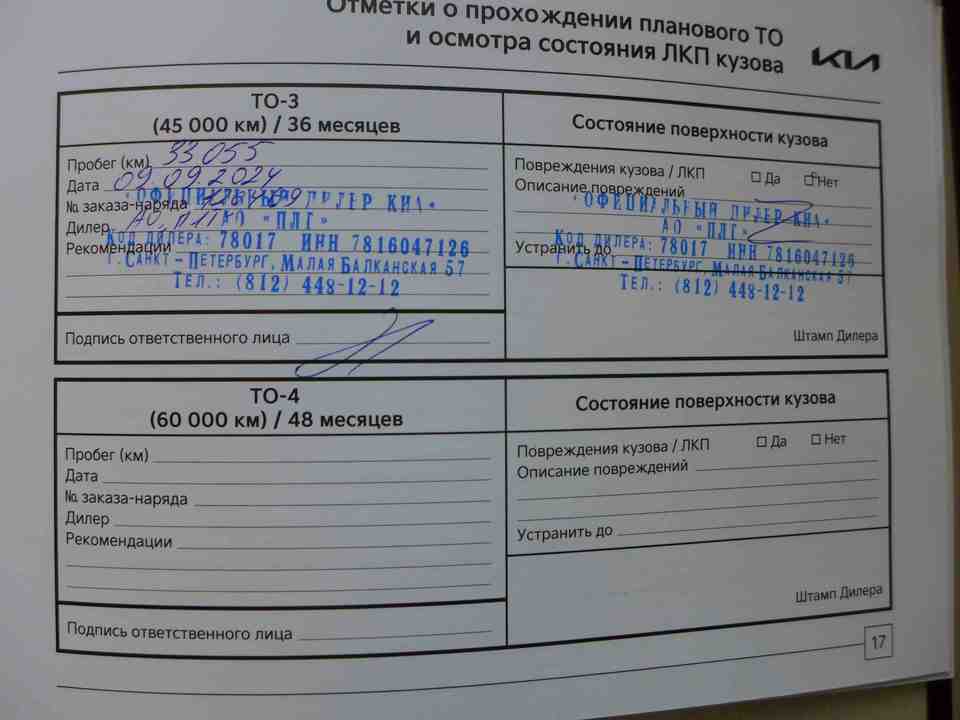 Отметки о прохождении планового ТО
и осмотра состояния ЛКП кузова
KIA
ТО-3
(45 000 км) / 36 месяцев
Пробег (км) 33 055
Дата 09.09.2024
№ заказа-наряда
Дилер АО "ПЛГ"
Рекомендации
"ОФИЦИАЛЬНЫЙ ДИЛЕР КИА"
АО «ПЛГ»
КОД ДИЛЕРА: 78017 ИНН 7816047126
Г.САНКТ-ПЕТЕРБУРГ, МАЛАЯ БАЛКАНСКАЯ 57
ТЕЛ.: (812) 448-12-12
Подпись ответственного лица
Состояние поверхности кузова
Повреждения кузова / ЛКП Да Нет
Описание повреждений
"ОФИЦИАЛЬНЫЙ ДИЛЕР КИА"
АО «ПЛГ»
Устранить до
КОД ДИЛЕРА: 78017 ИНН 7816047126
Г.САНКТ-ПЕТЕРБУРГ, МАЛАЯ БАЛКАНСКАЯ 57
ТЕЛ.: (812) 448-12-12
Штамп Дилера
ТО-4
(60 000 км) / 48 месяцев
Пробег (км)
Дата
№ заказа-наряда
Дилер
Рекомендации
Подпись ответственного лица
Состояние поверхности кузова
Повреждения кузова / ЛКП Да Нет
Описание повреждений
Устранить до
Штамп Дилера
17